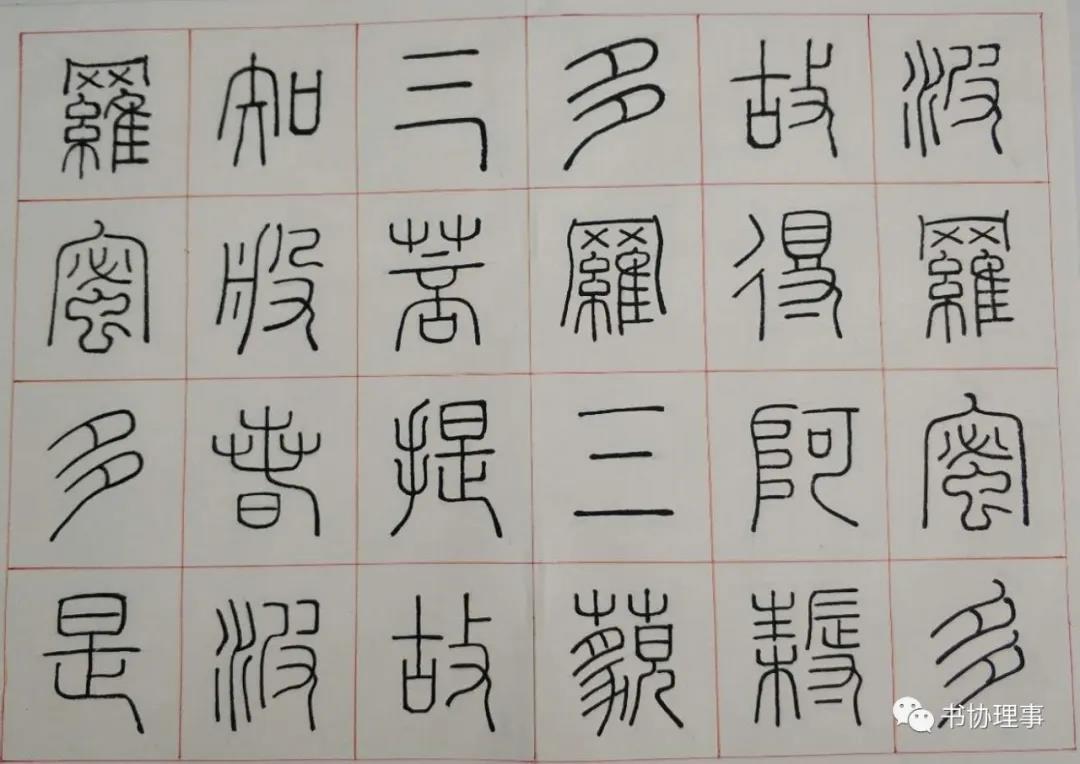 波羅蜜多
故得阿耨
多羅三藐
三菩提故
知般若波
羅蜜多是
书协理事